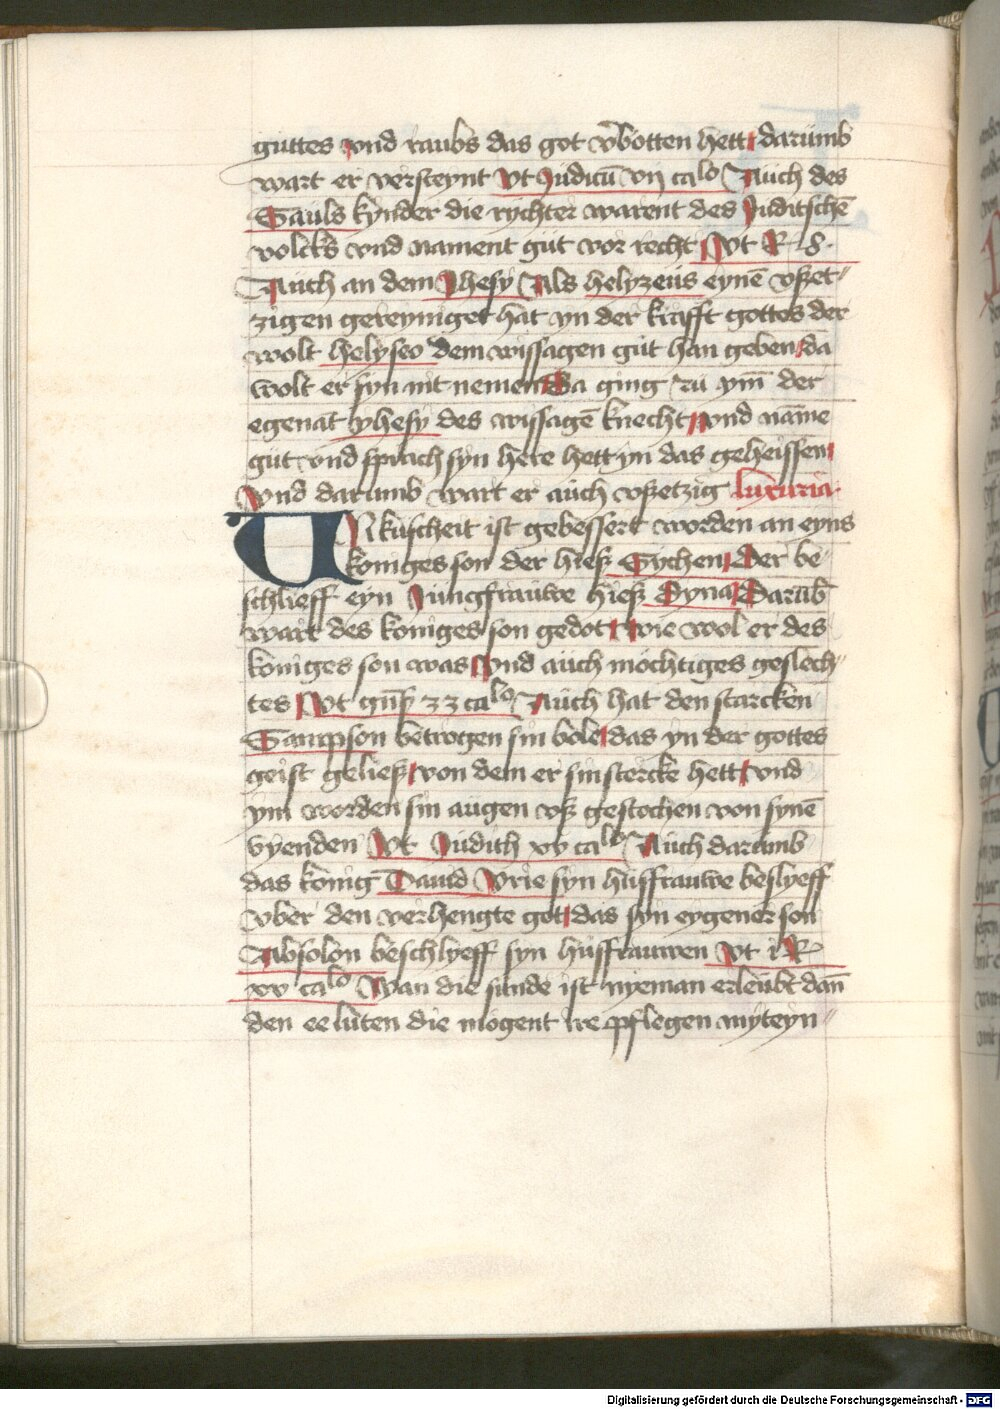 guttes vnd raubs das got v̄botten hett darumb
wart er versteynt Vt Judicū vij calo Auch des
Sauls kynder die rychter warent des Juditschē
volcks vnd nament gut vor recht Vt R 8.
Auch an dem Jhesy Als helyzeus eynē vßet-
zigen gereyniget hat yn der krafft gottes der
wolt helyseo dem wissagen gut han geben da
wolt er syn nit nemen Da ging zu ym̄ der
egenāt yhesy des wissagē knecht vnd nāme
gut vnd sprach syn here hett yn das geheissen
vnd darumb wart er auch vßetzig luxuria
UNkuscheit ist gebessert worden an eyns
koniges son der hieß Sychen Der be-
schlieff eyn Jungfrauwe hieß Dyna Darūb
wart des koniges son gedot wie wol er des
koniges son was Vnd auch mochtiges geslech-
tes Vt gn̄ß 33 calo Auch hat den starcken
Sampson betrogen sin bole das yn der gottes
geist geließ von dem er sin stercke hett vnd
ym worden sin augen vß gestochen von synē
vyenden Vt Judith xv calo Auch darumb
das konig Dauid Vrie syn husffrauwe beslyeff
vber den verhengte got das syn eygener son
Absolon beschlyeff syn husffrauwen Vt 2 R
xv calo Wan die sunde ist nyeman erleubt dan̄
den ee luten die mogent ire pflegen myteyn-
Digitalisierung gefördert durch die Deutsche Forschungsgemeinschaft - DFG